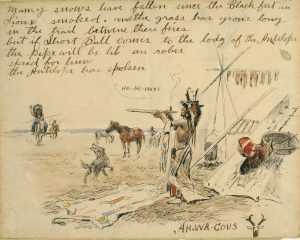 Many snows have fallen since the Black feet in
Sioux smoked. molla grass has grone long
in the trail betwine there fires
but if Short Bull comes to the lodg of the Antilope
the pipe will be lit an robes
spred for him
the Antilope has spoken
HO-HO-HOHE
AH-WA-COUS